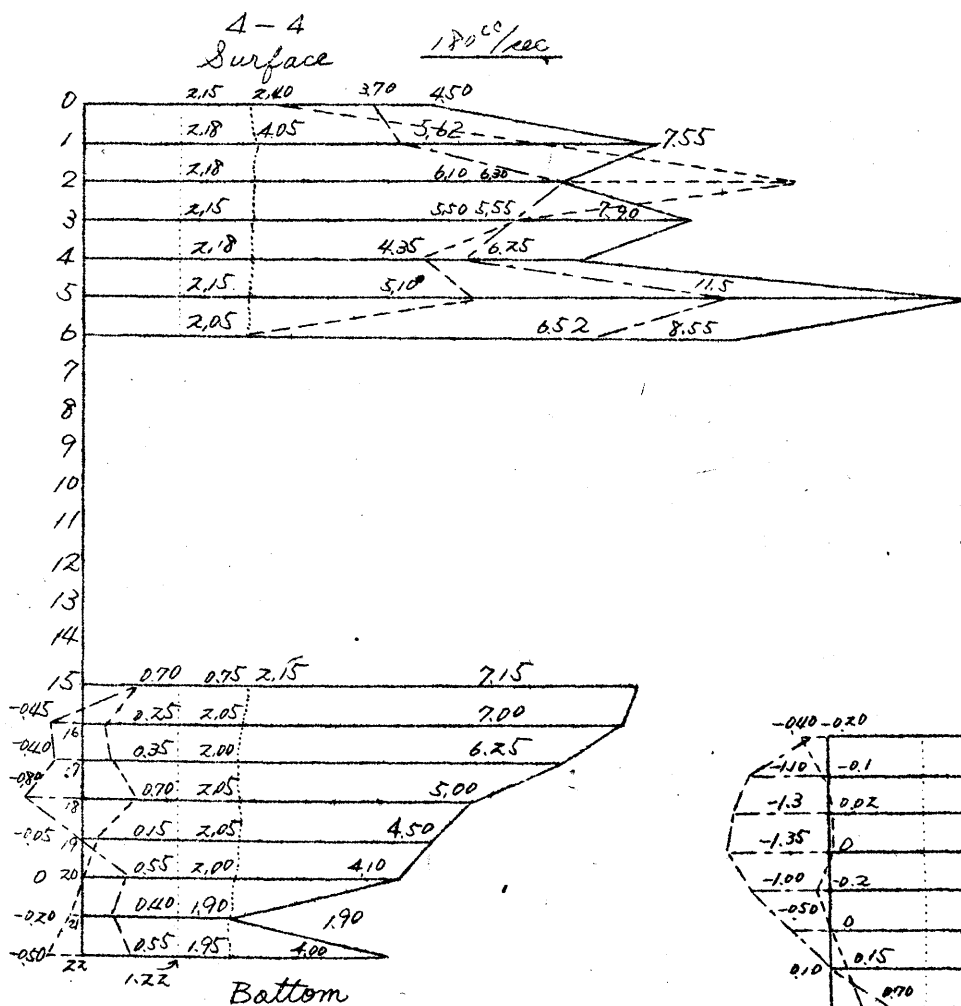 4-4
Surface 180 cc/sec
0 2.15 2.40 3.70 4.50
1 2.18 4.05 5.62 7.55
2 2.18 6.10 6.30
3 2.15 5.50 5.55 7.90
4 2.18 4.35 6.25
5 2.15 5.10 11.5
6 2.05 6.52 8.55
7
8
9
10
11
12
13
14
15 0.70 0.75 2.15 7.15
-0.45 16 0.25 2.05 7.00
-0.40 17 0.35 2.00 6.25
-0.80 18 0.70 2.05 5.00
-0.05 19 0.15 2.05 4.50
0 20 0.55 2.00 4.10
-0.20 21 0.40 1.90 1.90
-0.50 22 0.55 1.95 4.00
1.22
Bottom
-0.40 -0.20
-1.10 -0.1
-1.3 0.02
-1.35 0
-1.00 -0.2
-0.50 0
0.10 0.15
0.70